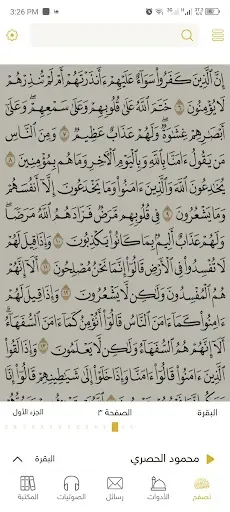 3:26 PM
إِنَّ ٱلَّذِينَ كَفَرُوا۟ سَوَآءٌ عَلَيْهِمْ ءَأَنذَرْتَهُمْ أَمْ لَمْ تُنذِرْهُمْ
لَا يُؤْمِنُونَ ٦ خَتَمَ ٱللَّهُ عَلَىٰ قُلُوبِهِمْ وَعَلَىٰ سَمْعِهِمْ ۖ وَعَلَىٰٓ
أَبْصَٰرِهِمْ غِشَٰوَةٌ ۖ وَلَهُمْ عَذَابٌ عَظِيمٌ ٧ وَمِنَ ٱلنَّاسِ
مَن يَقُولُ ءَامَنَّا بِٱللَّهِ وَبِٱلْيَوْمِ ٱلْءَاخِرِ وَمَا هُم بِمُؤْمِنِينَ ٨
يُخَٰدِعُونَ ٱللَّهَ وَٱلَّذِينَ ءَامَنُوا۟ وَمَا يَخْدَعُونَ إِلَّآ أَنفُسَهُمْ
وَمَا يَشْعُرُونَ ٩ فِى قُلُوبِهِم مَّرَضٌ فَزَادَهُمُ ٱللَّهُ مَرَضًا ۖ
وَلَهُمْ عَذَابٌ أَلِيمٌۢ بِمَا كَانُوا۟ يَكْذِبُونَ ١٠ وَإِذَا قِيلَ لَهُمْ
لَا تُفْسِدُوا۟ فِى ٱلْأَرْضِ قَالُوٓا۟ إِنَّمَا نَحْنُ مُصْلِحُونَ ١١ أَلَآ إِنَّهُمْ
هُمُ ٱلْمُفْسِدُونَ وَلَٰكِن لَّا يَشْعُرُونَ ١٢ وَإِذَا قِيلَ لَهُمْ
ءَامِنُوا۟ كَمَآ ءَامَنَ ٱلنَّاسُ قَالُوٓا۟ أَنُؤْمِنُ كَمَآ ءَامَنَ ٱلسُّفَهَآءُ ۗ
أَلَآ إِنَّهُمْ هُمُ ٱلسُّفَهَآءُ وَلَٰكِن لَّا يَعْلَمُونَ ١٣ وَإِذَا لَقُوا۟
ٱلَّذِينَ ءَامَنُوا۟ قَالُوٓا۟ ءَامَنَّا وَإِذَا خَلَوْا۟ إِلَىٰ شَيَٰطِينِهِمْ قَالُوٓا۟
البقرة الصفحة ٣ الجزء الأول
محمود الحصري البقرة
تصفح الأدوات رسائل الصوتيات المكتبة